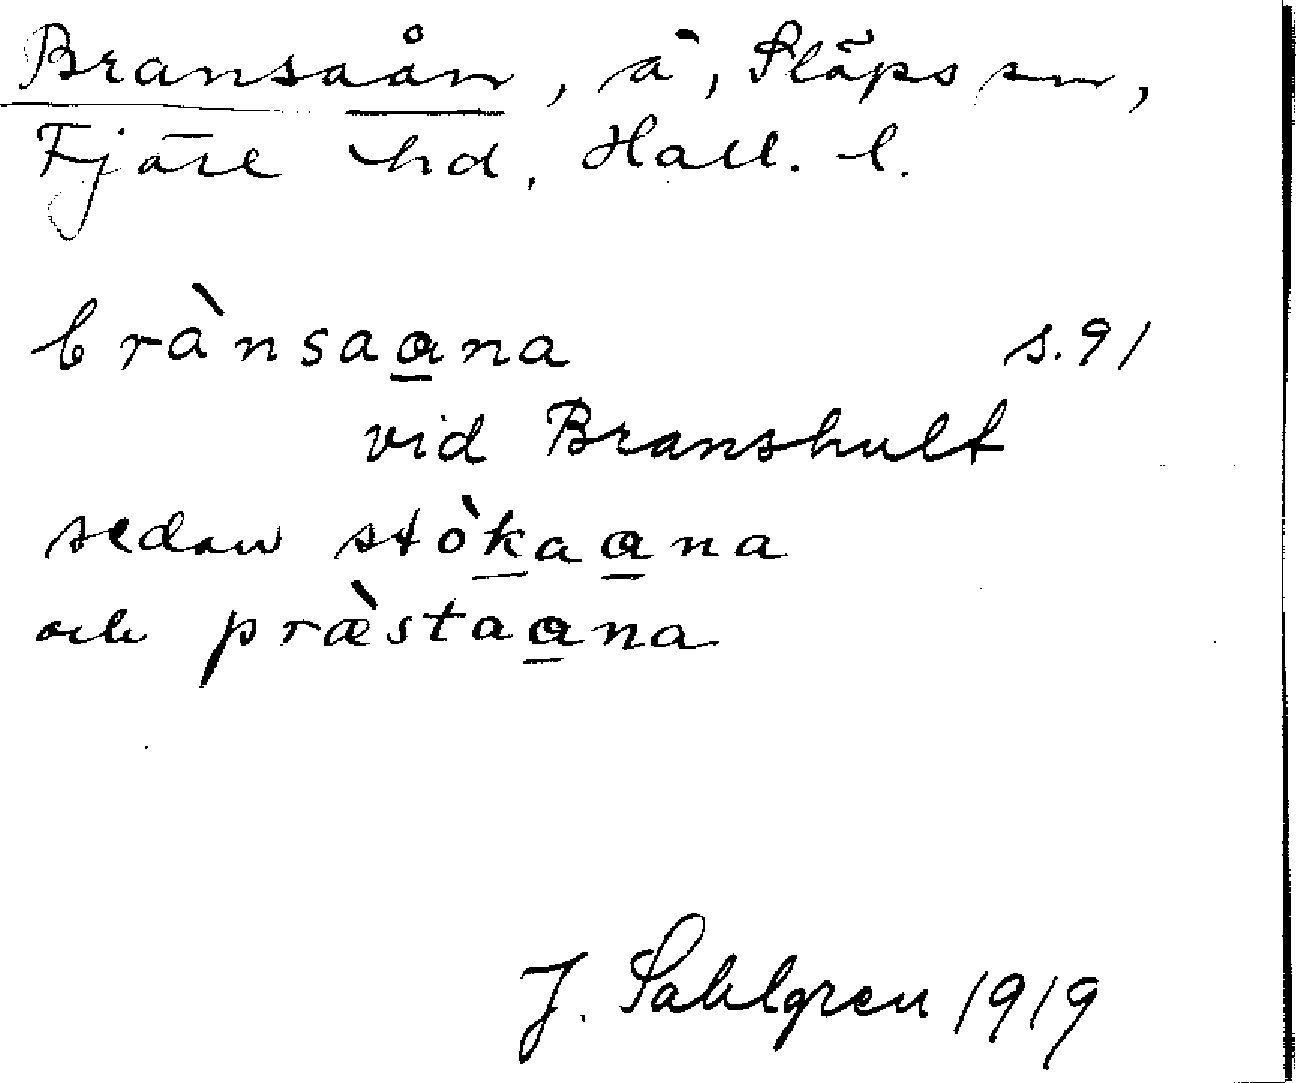 Bransaån, å, Släps sn,
Fjäre hd, Hall. l.
brànsaɑna s.91
vid Branshult
sedan stòkaɑna
och præ̀staɑna
J. Sahlgren 1919